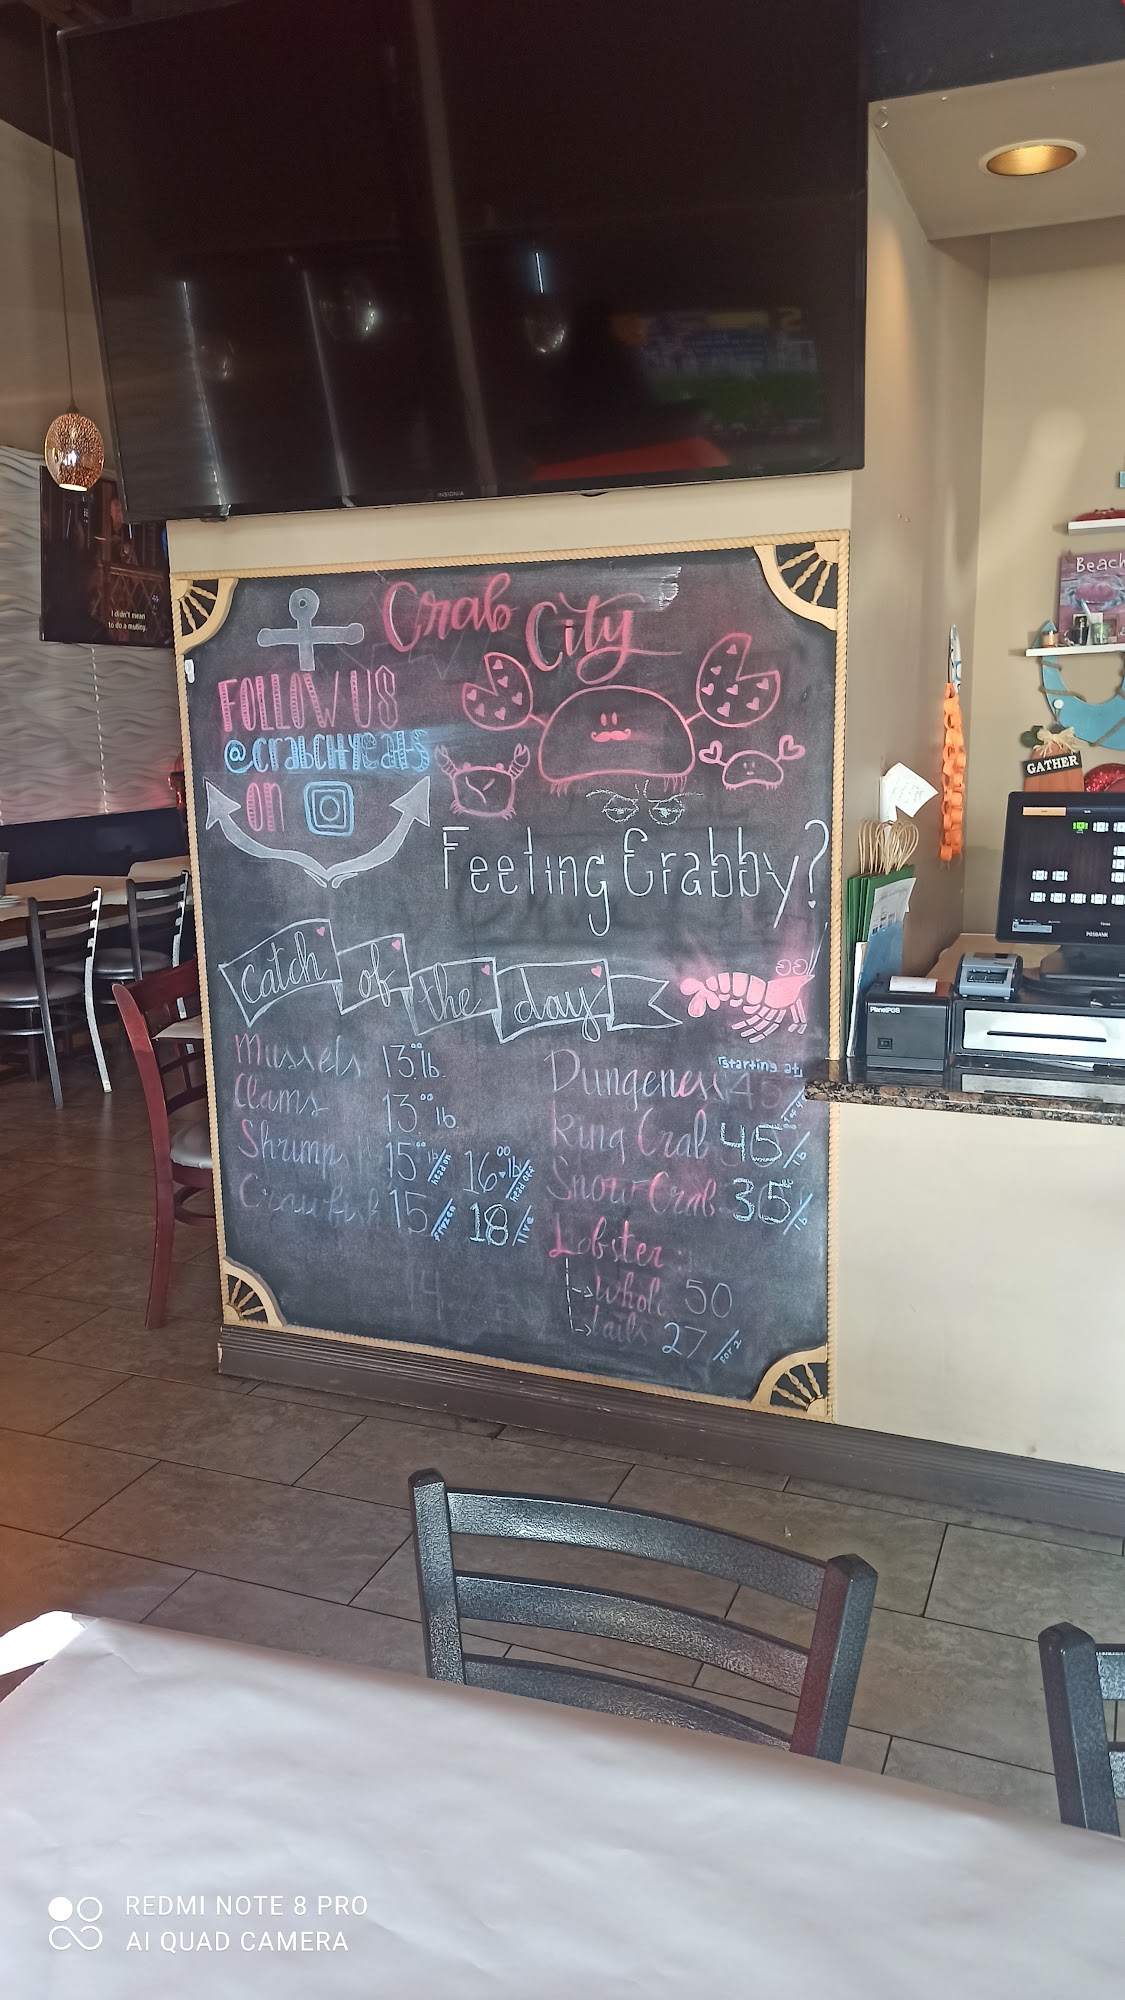 INSIGNIA
I didn't mean
to do a mutiny.
Crab City
FOLLOW US
@crabcityeats
on
Feeling Crabby?
catch of the day
Mussels 13.00 lb.
Clams 13.00 lb
Shrimp 15.00 lb/head on 16.00 lb/head off
Crawfish 15/frozen 18/live
Dungeness starting at 45
King Crab 45/lb
Snow Crab 35/lb
Lobster:
Whole 50
tails 27/for 2
Beach
GATHER
POSBANK
PlanetPOS
REDMI NOTE 8 PRO
AI QUAD CAMERA